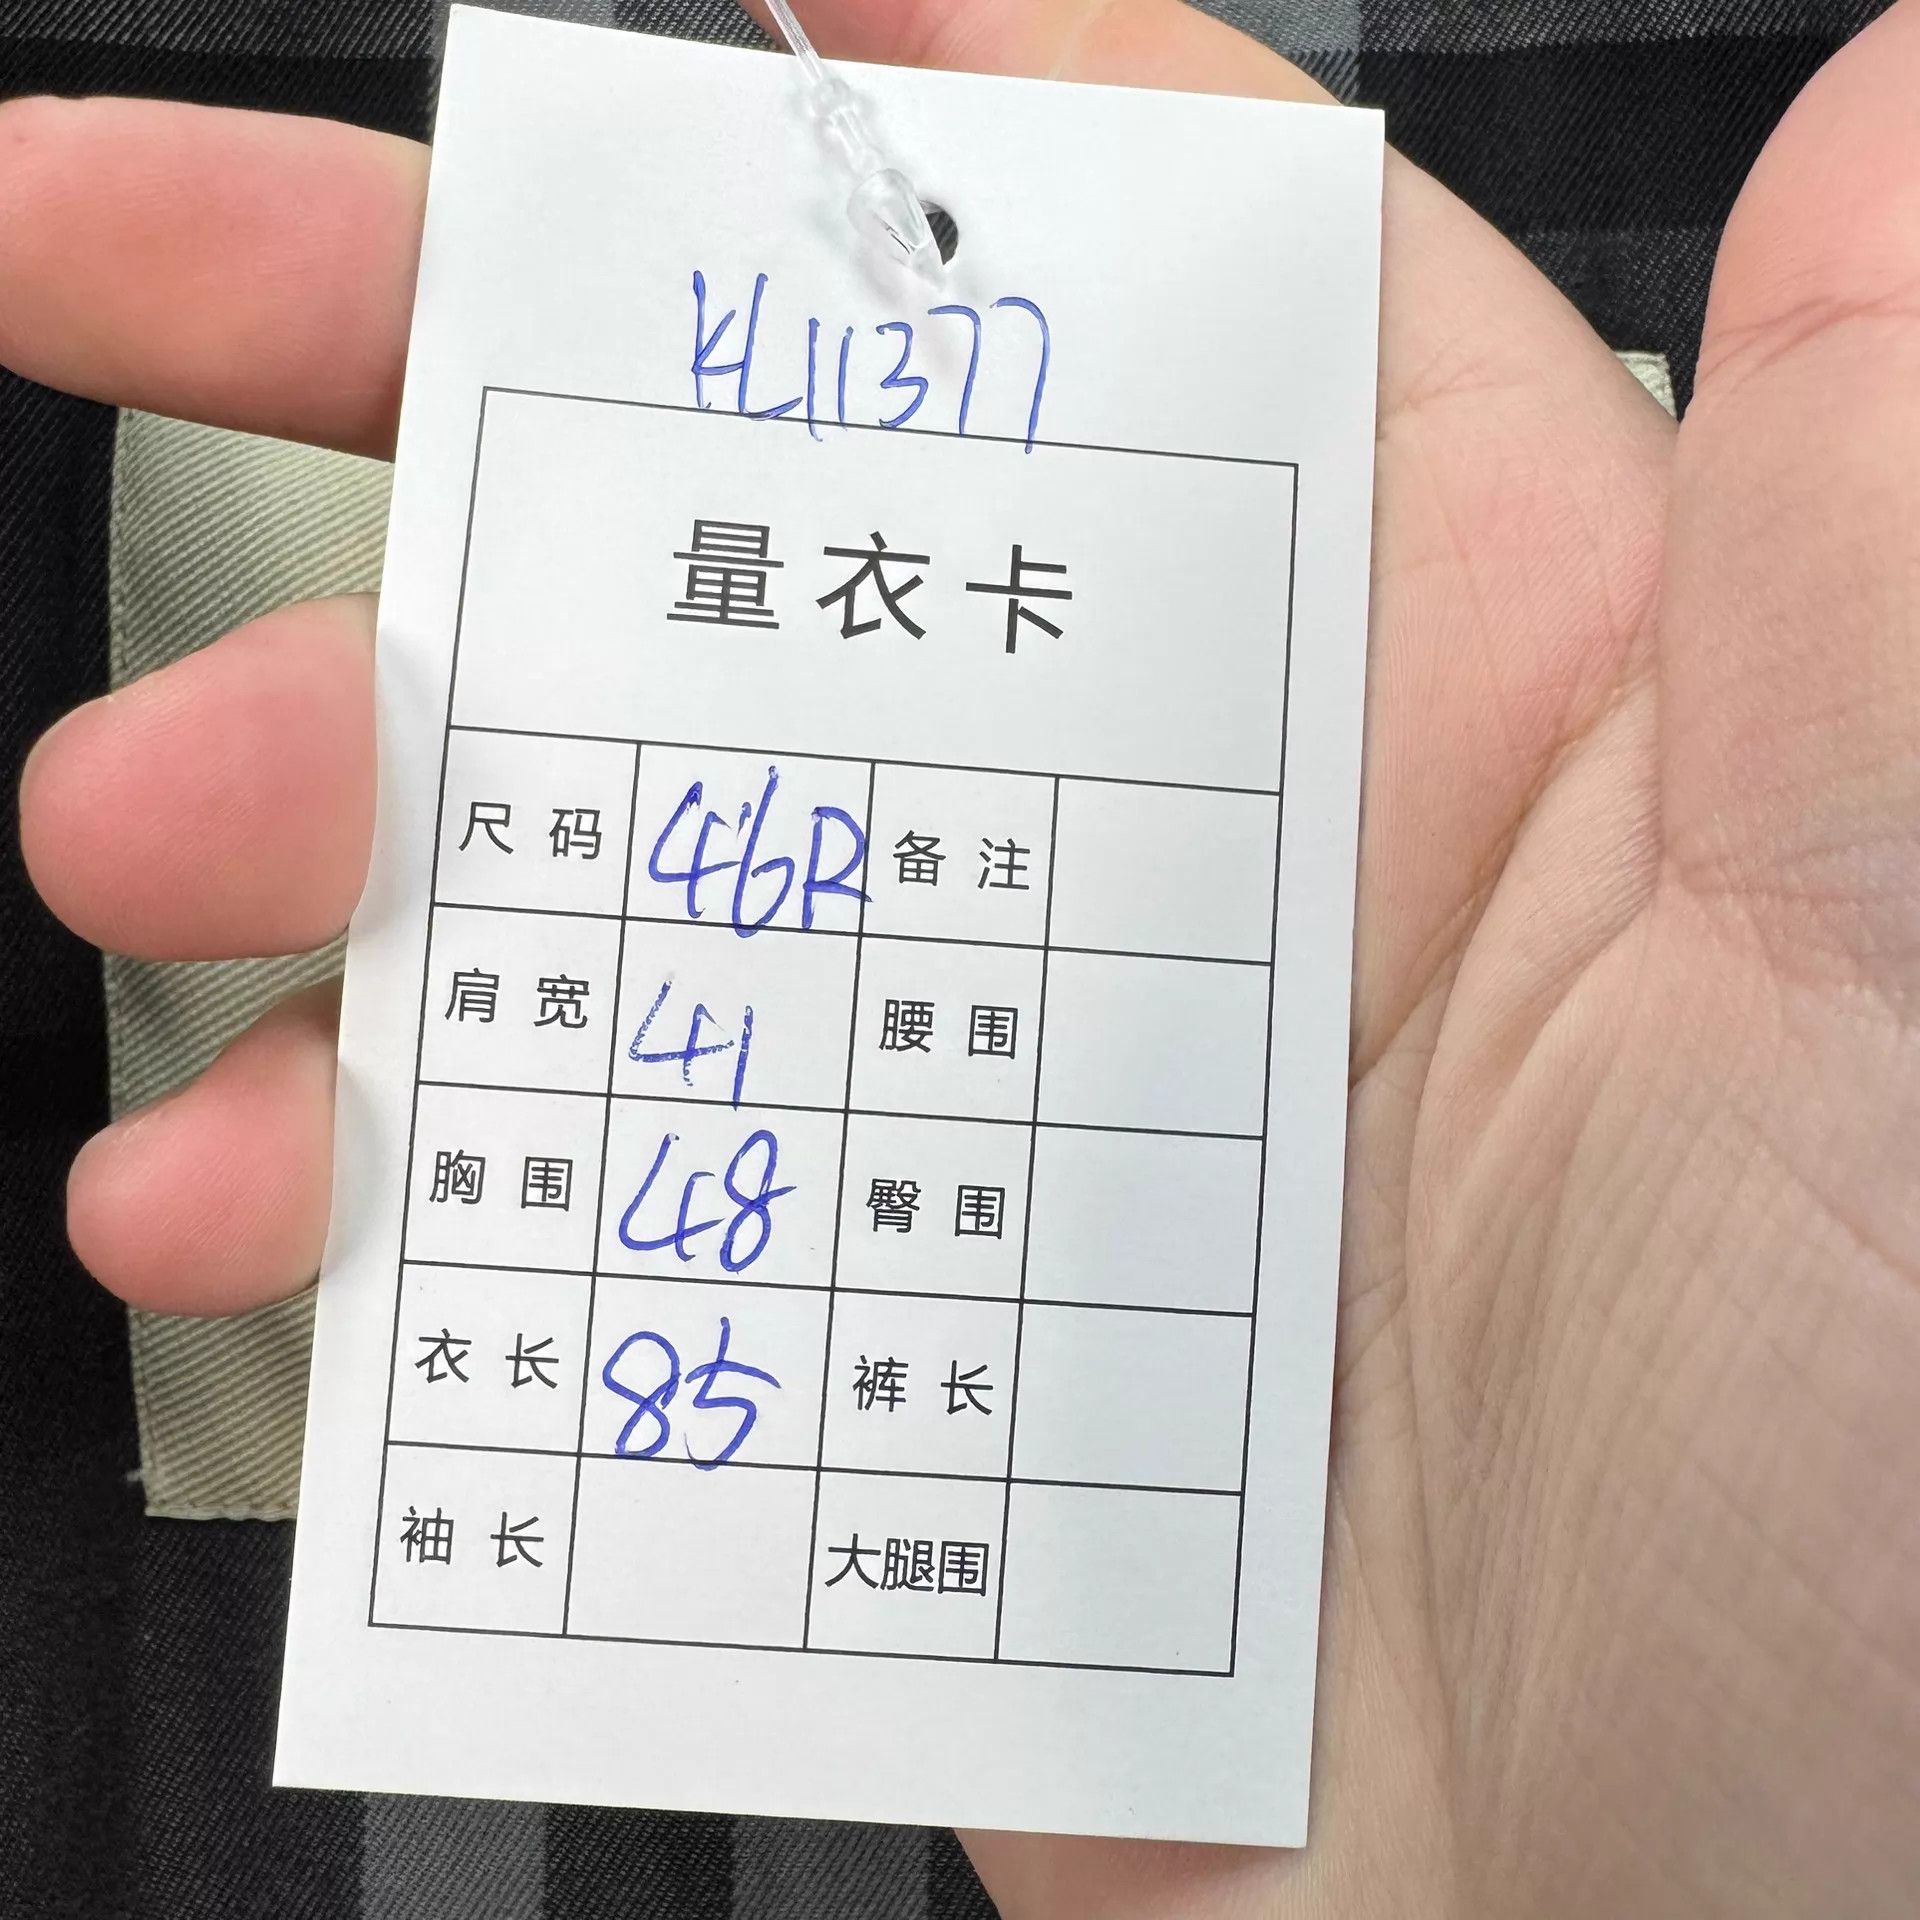 KL11377
量衣卡
尺码 46R 备注
肩宽 41 腰围
胸围 48 臀围
衣长 85 裤长
袖长 大腿围